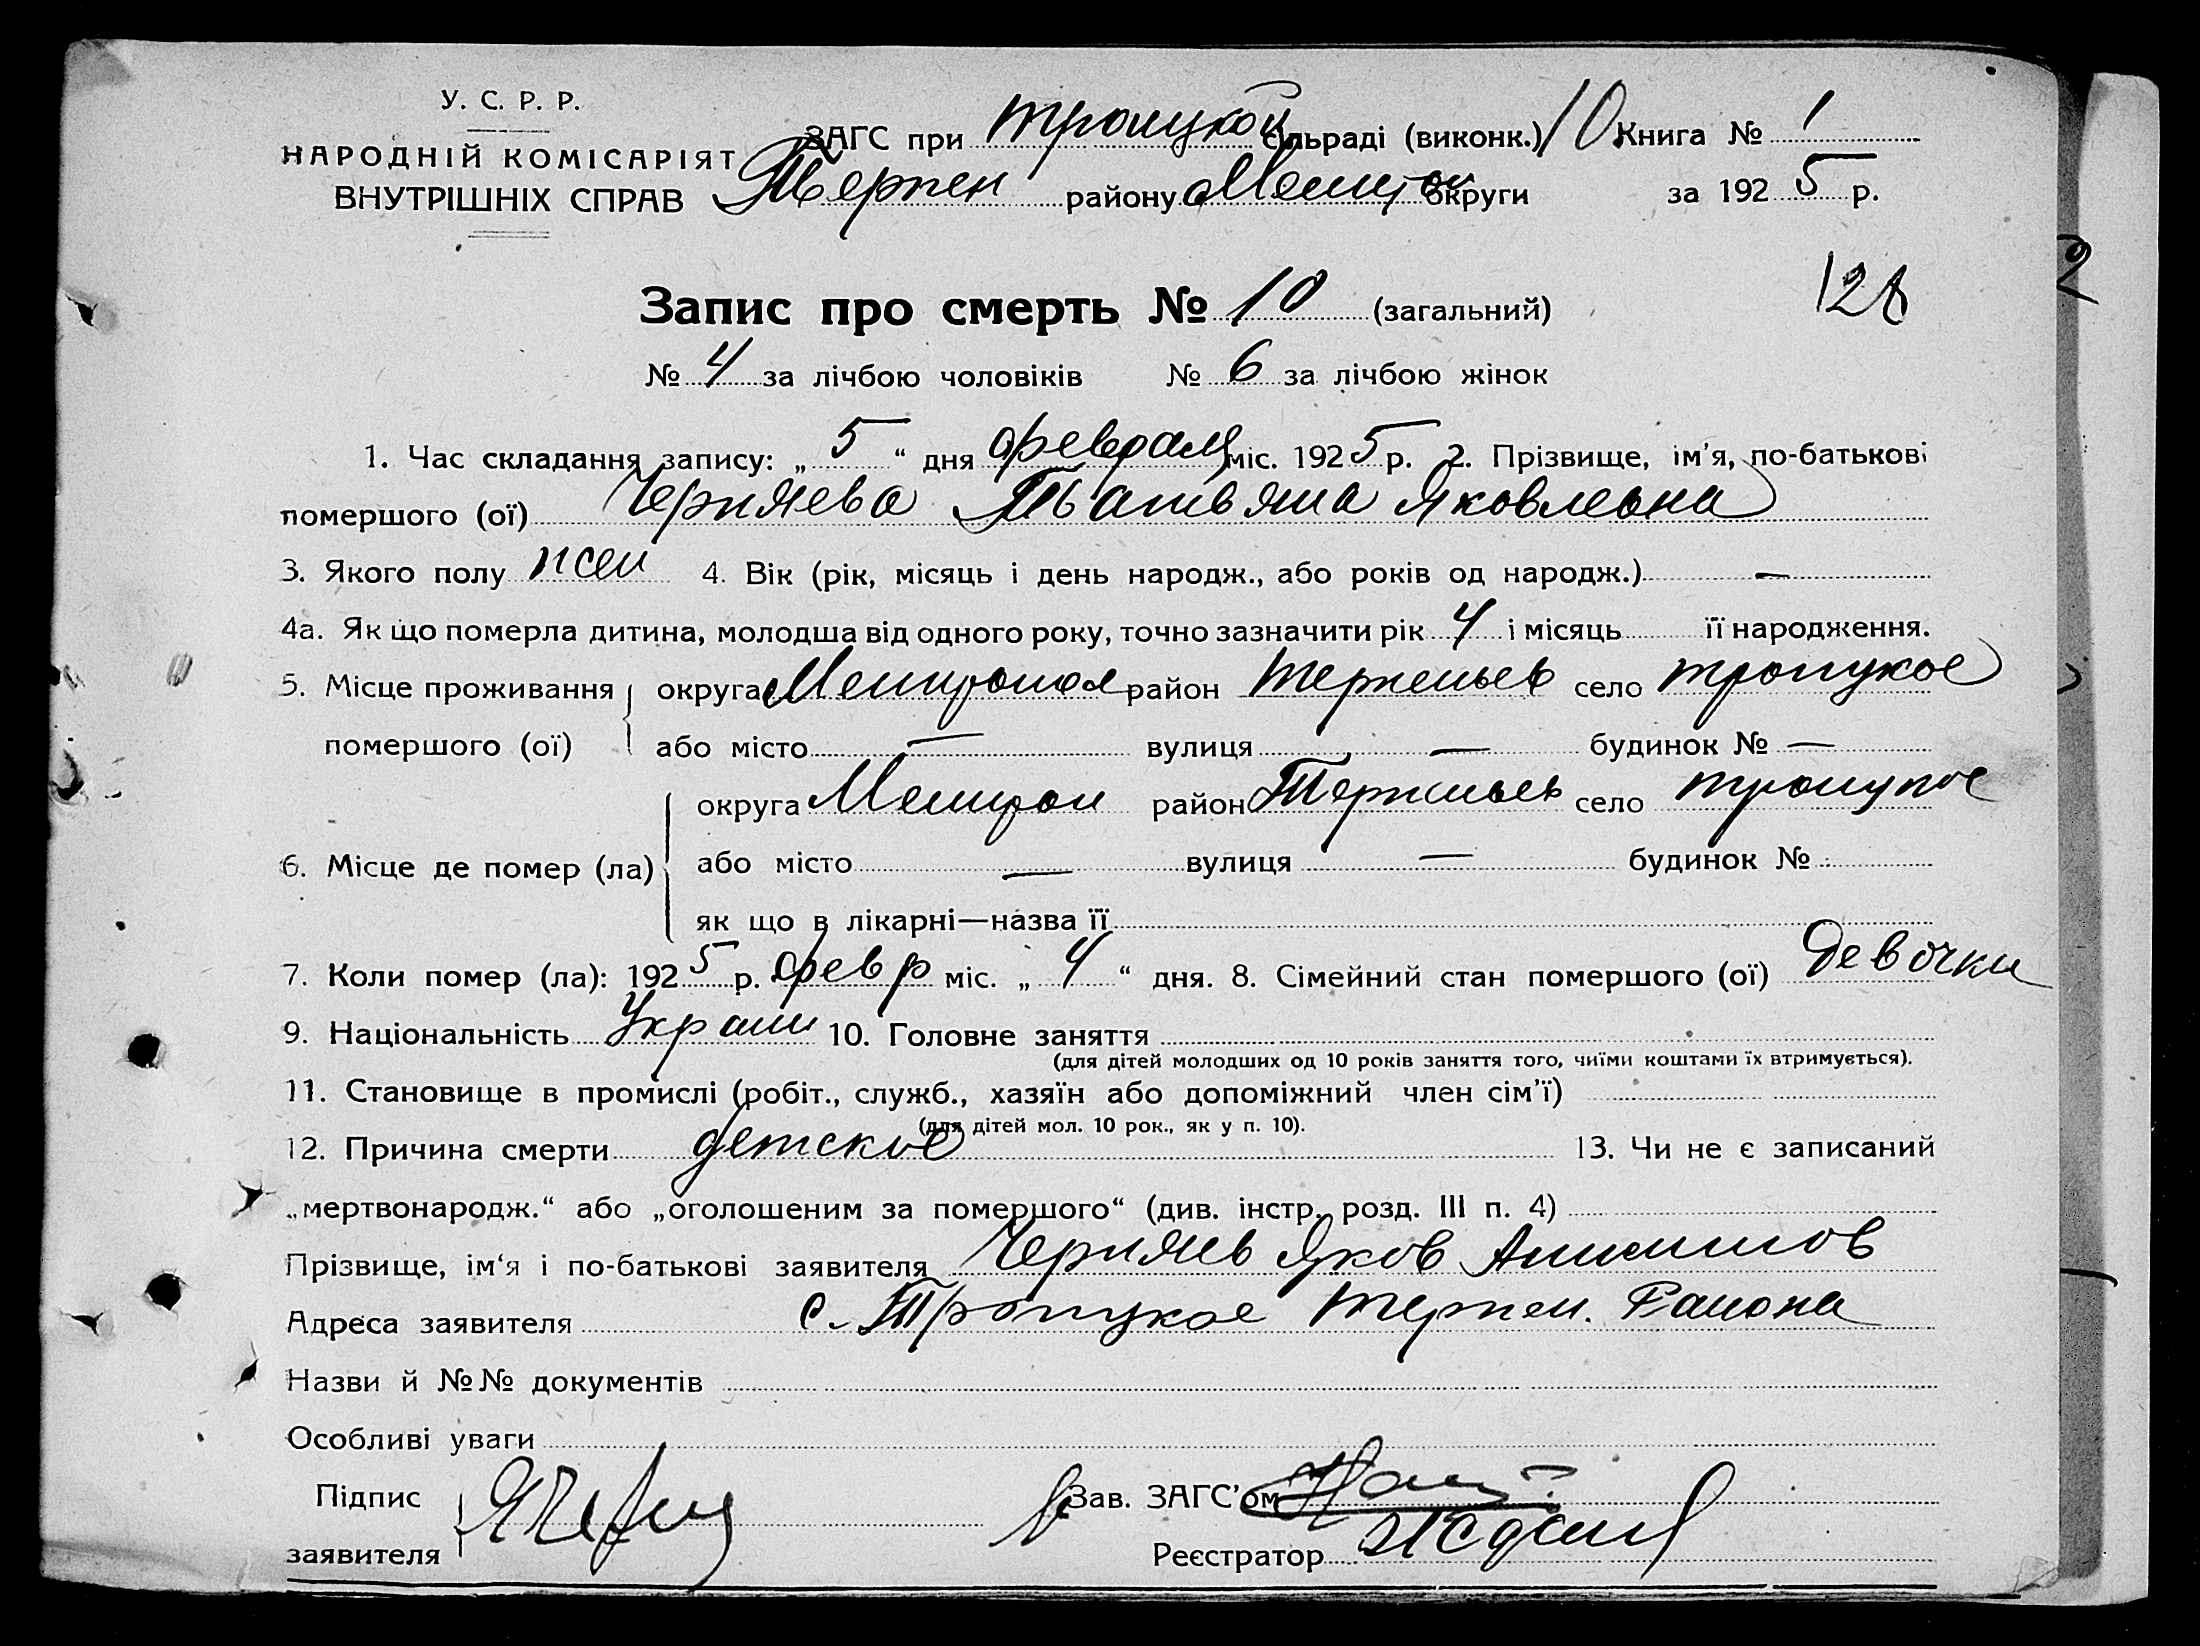 У. С. Р. Р.
НАРОДНІЙ КОМІСАРІЯТ
ВНУТРІШНІХ СПРАВ
ЗАГС при Троицкой сільраді (виконк.) 10 Книга № 1
Терпен району Мелит округи за 1925 р.
128
Запис про смерть № 10 (загальний)
№ 4 за лічбою чоловіків № 6 за лічбою жінок
1. Час складання запису: „5“ дня февраля міс. 1925 р. 2. Прізвище, ім'я, по-батькові
помершого (ої) Черняева Татьяна Яковлевна
3. Якого полу жен 4. Вік (рік, місяць і день народж., або років од народж.) —
4а. Як що померла дитина, молодша від одного року, точно зазначити рік 4 і місяць її народження.
5. Місце проживання помершого (ої) округа Мелитопол район Терпеньев село Троицкое
або місто — вулиця — будинок № —
6. Місце де помер (ла) округа Мелитоп район Терпеньев село Троицкое
або місто — вулиця — будинок №
як що в лікарні—назва її
7. Коли помер (ла): 1925 р. февр міс. „4“ дня. 8. Сімейний стан помершого (ої) Девочка
9. Національність Украин 10. Головне заняття
(для дітей молодших од 10 років заняття того, чиїми коштами їх втримується).
11. Становище в промислі (робіт., служб., хазяїн або допоміжний член сім'ї)
(для дітей мол. 10 рок., як у п. 10).
12. Причина смерти детское 13. Чи не є записаний
„мертвонародж.“ або „оголошеним за помершого“ (див. інстр. розд. III п. 4)
Прізвище, ім'я і по-батькові заявителя Черняев Яков
Адреса заявителя с. Троицкое Терпен. Района
Назви й №№ документів
Особливі уваги
Підпис заявителя
Зав. ЗАГС'ом
Реєстратор